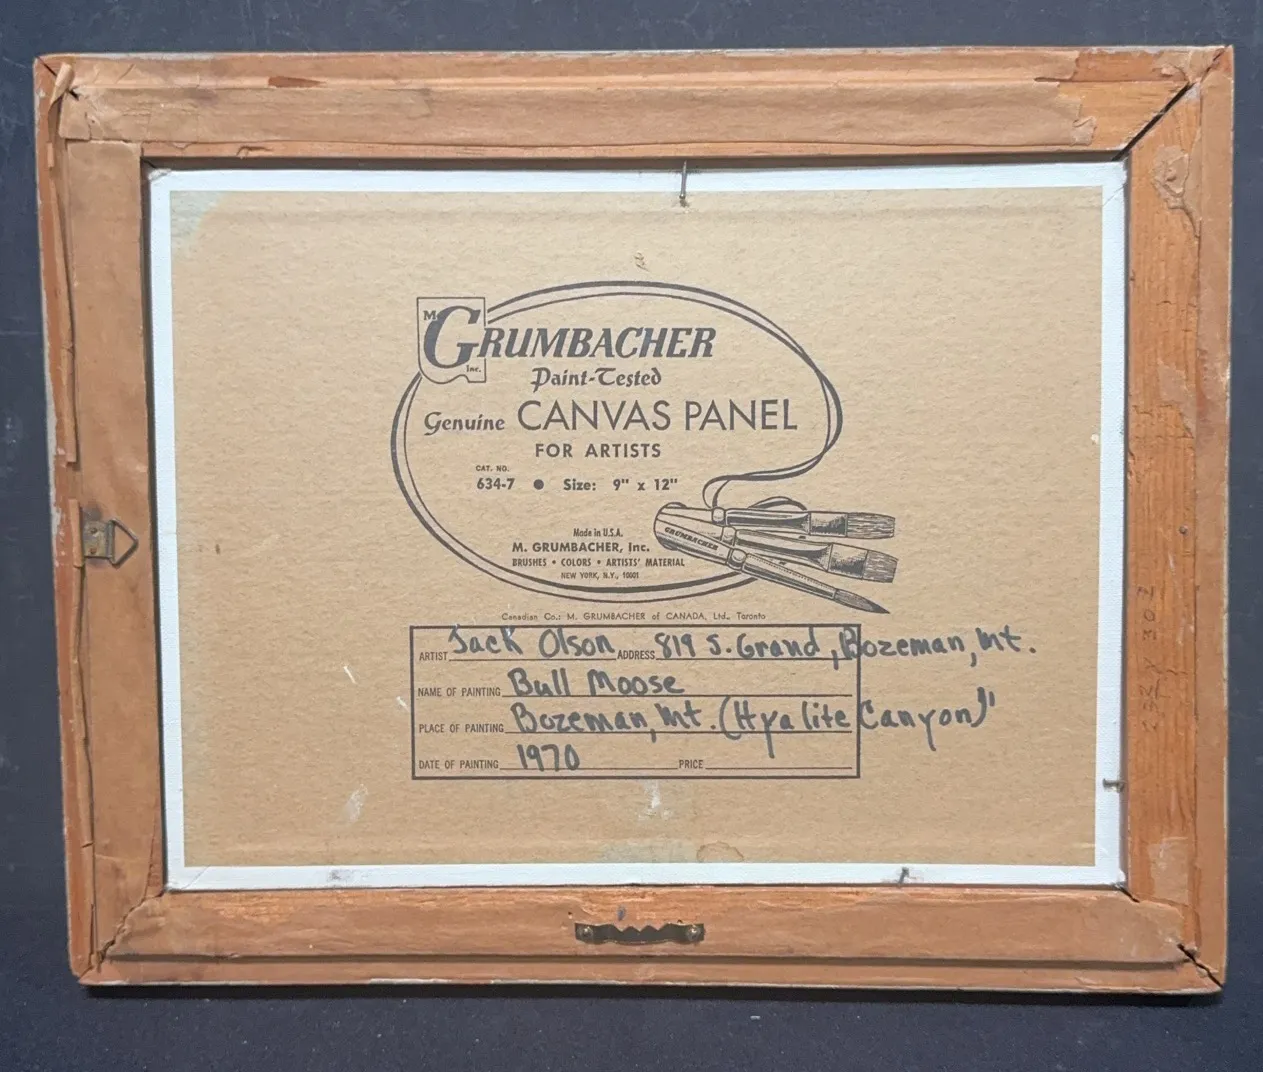 M GRUMBACHER Inc.
Paint-Tested
Genuine CANVAS PANEL
FOR ARTISTS
CAT. NO.
634-7 ● Size: 9" x 12"
GRUMBACHER
Made in U.S.A.
M. GRUMBACHER, Inc.
BRUSHES • COLORS • ARTISTS' MATERIAL
NEW YORK, N.Y., 10001
Canadian Co.: M. GRUMBACHER of CANADA, Ltd., Toronto
ARTIST Jack Olson ADDRESS 819 S. Grand, Bozeman, Mt.
NAME OF PAINTING Bull Moose
PLACE OF PAINTING Bozeman, Mt. (Hyalite Canyon)"
DATE OF PAINTING 1970 PRICE